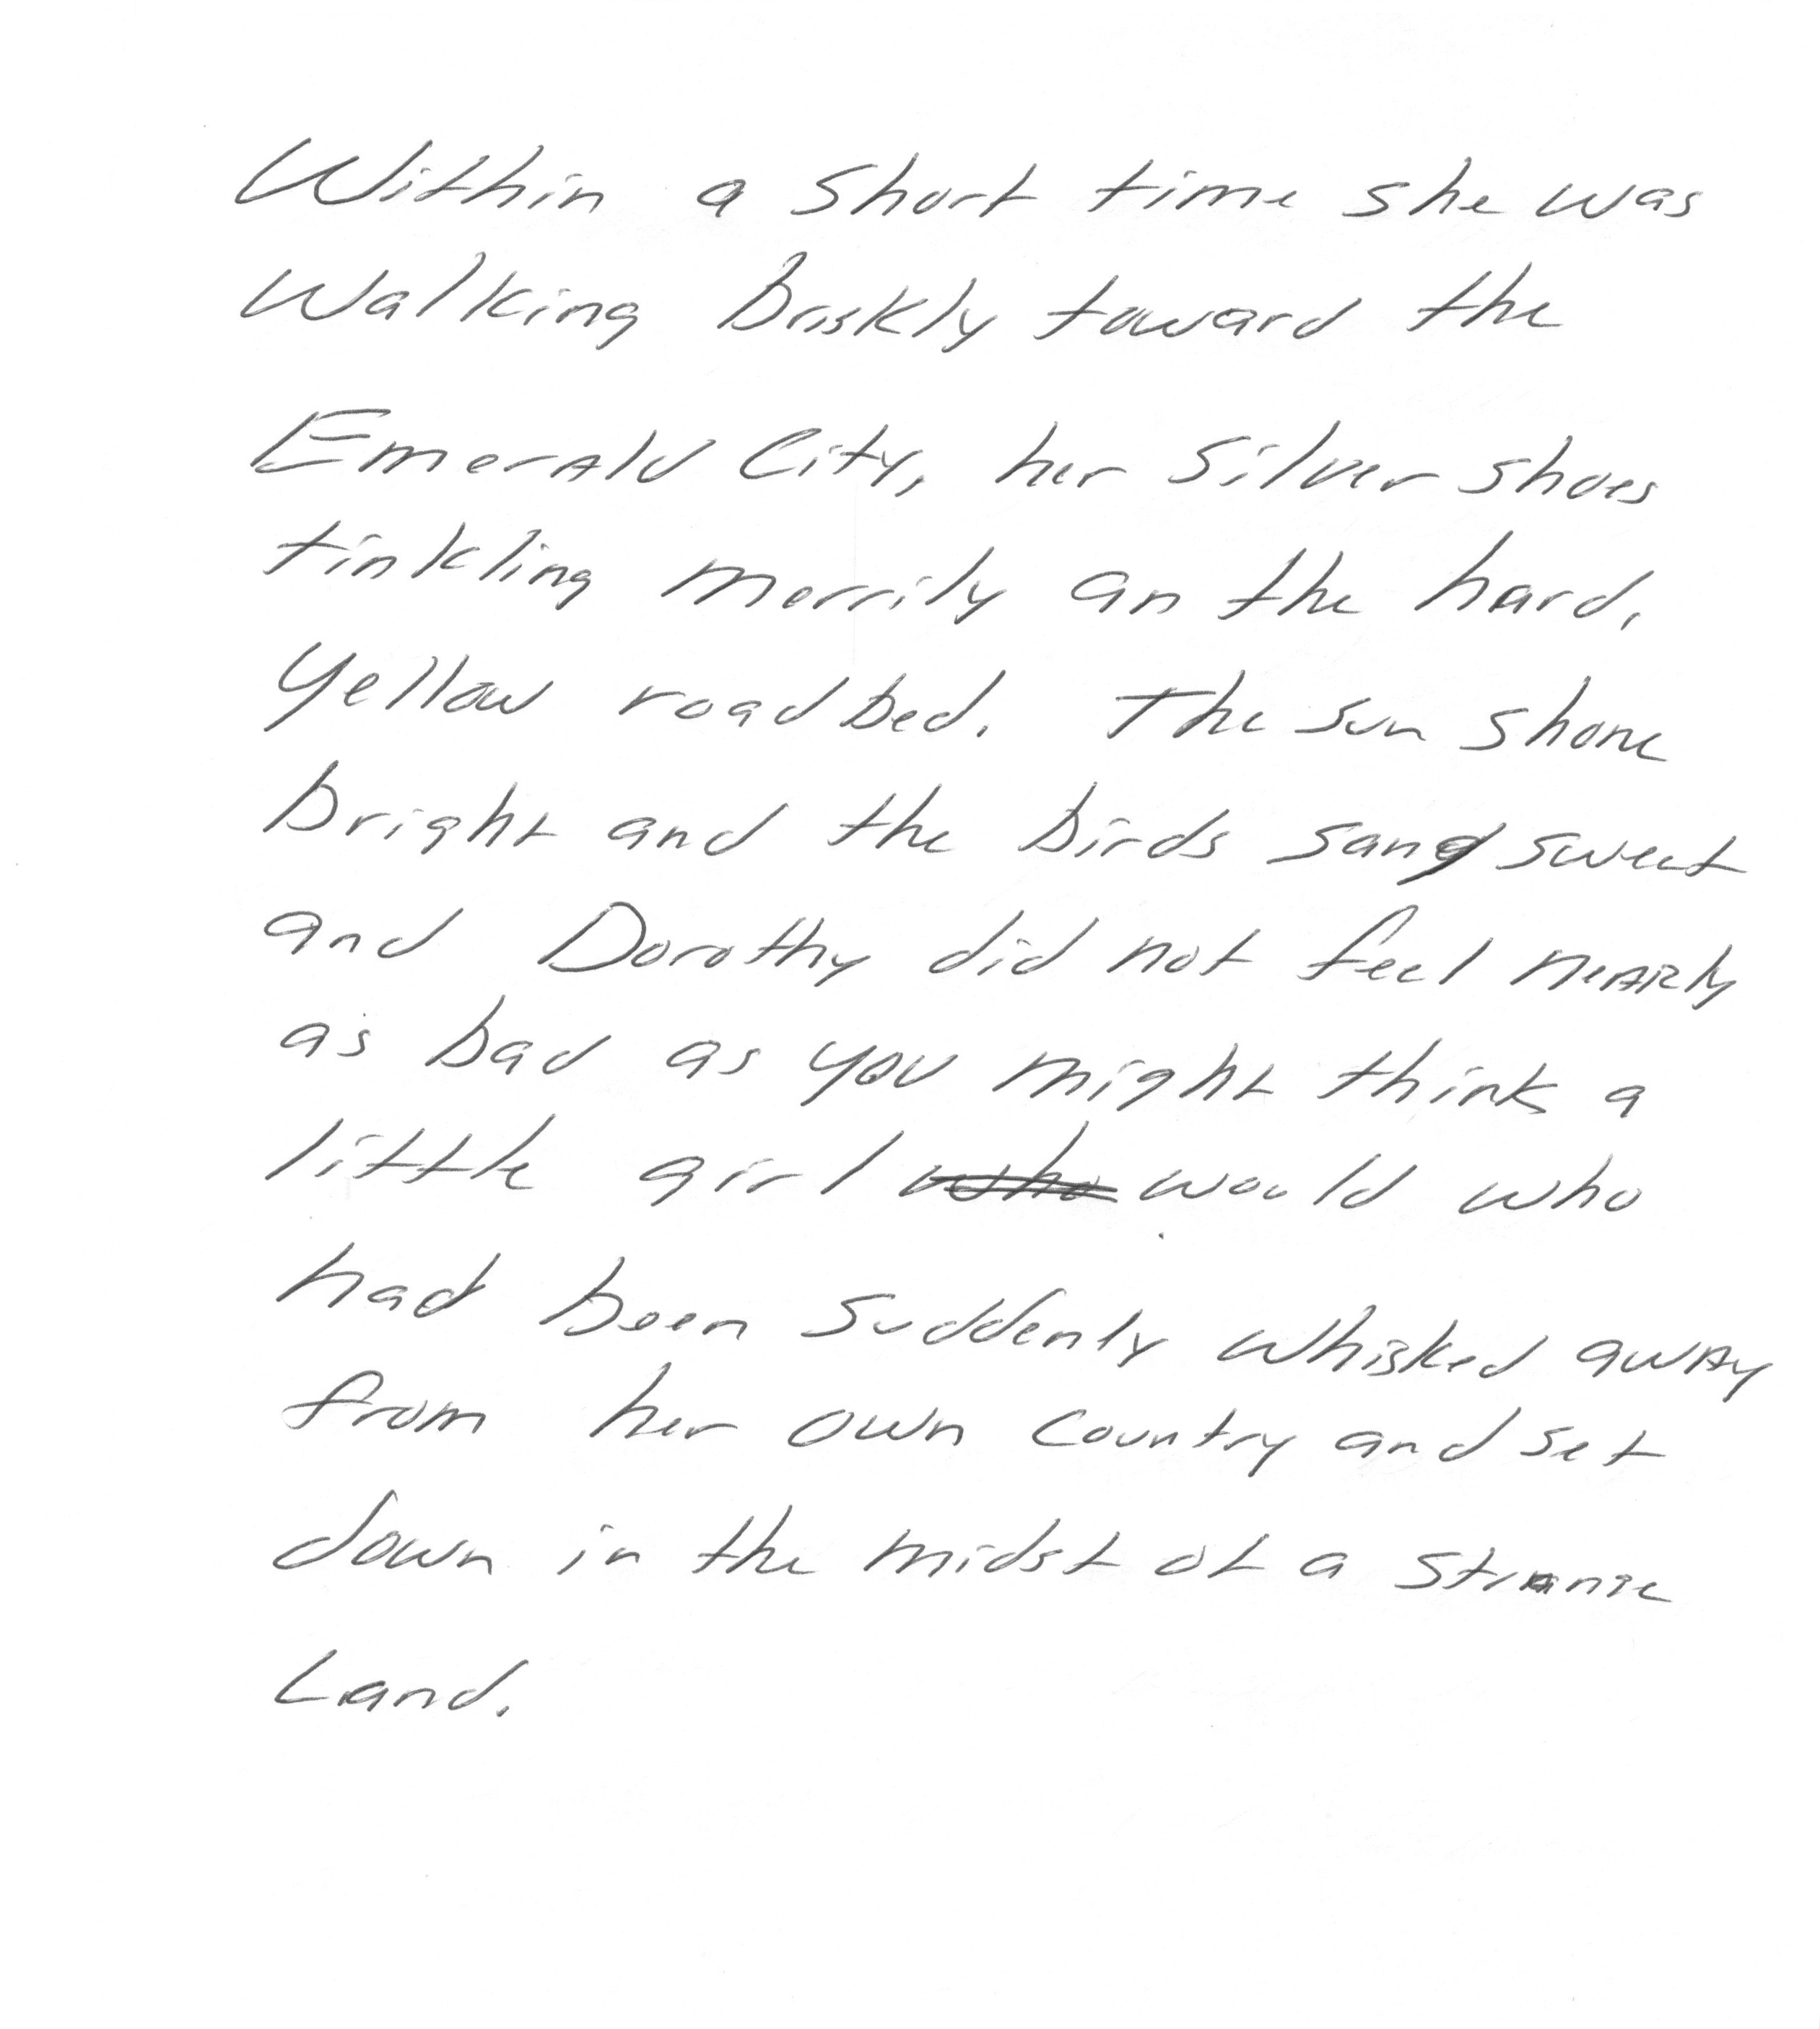 Within a short time she was
walking briskly toward the
Emerald City, her silver shoes
tinkling merrily on the hard,
yellow roadbed. The sun shone
bright and the birds sang sweet
and Dorothy did not feel nearly
as bad as you might think a
little girl ~~who~~ would who
had been suddenly whisked away
from her own country and set
down in the midst of a strange
Land.